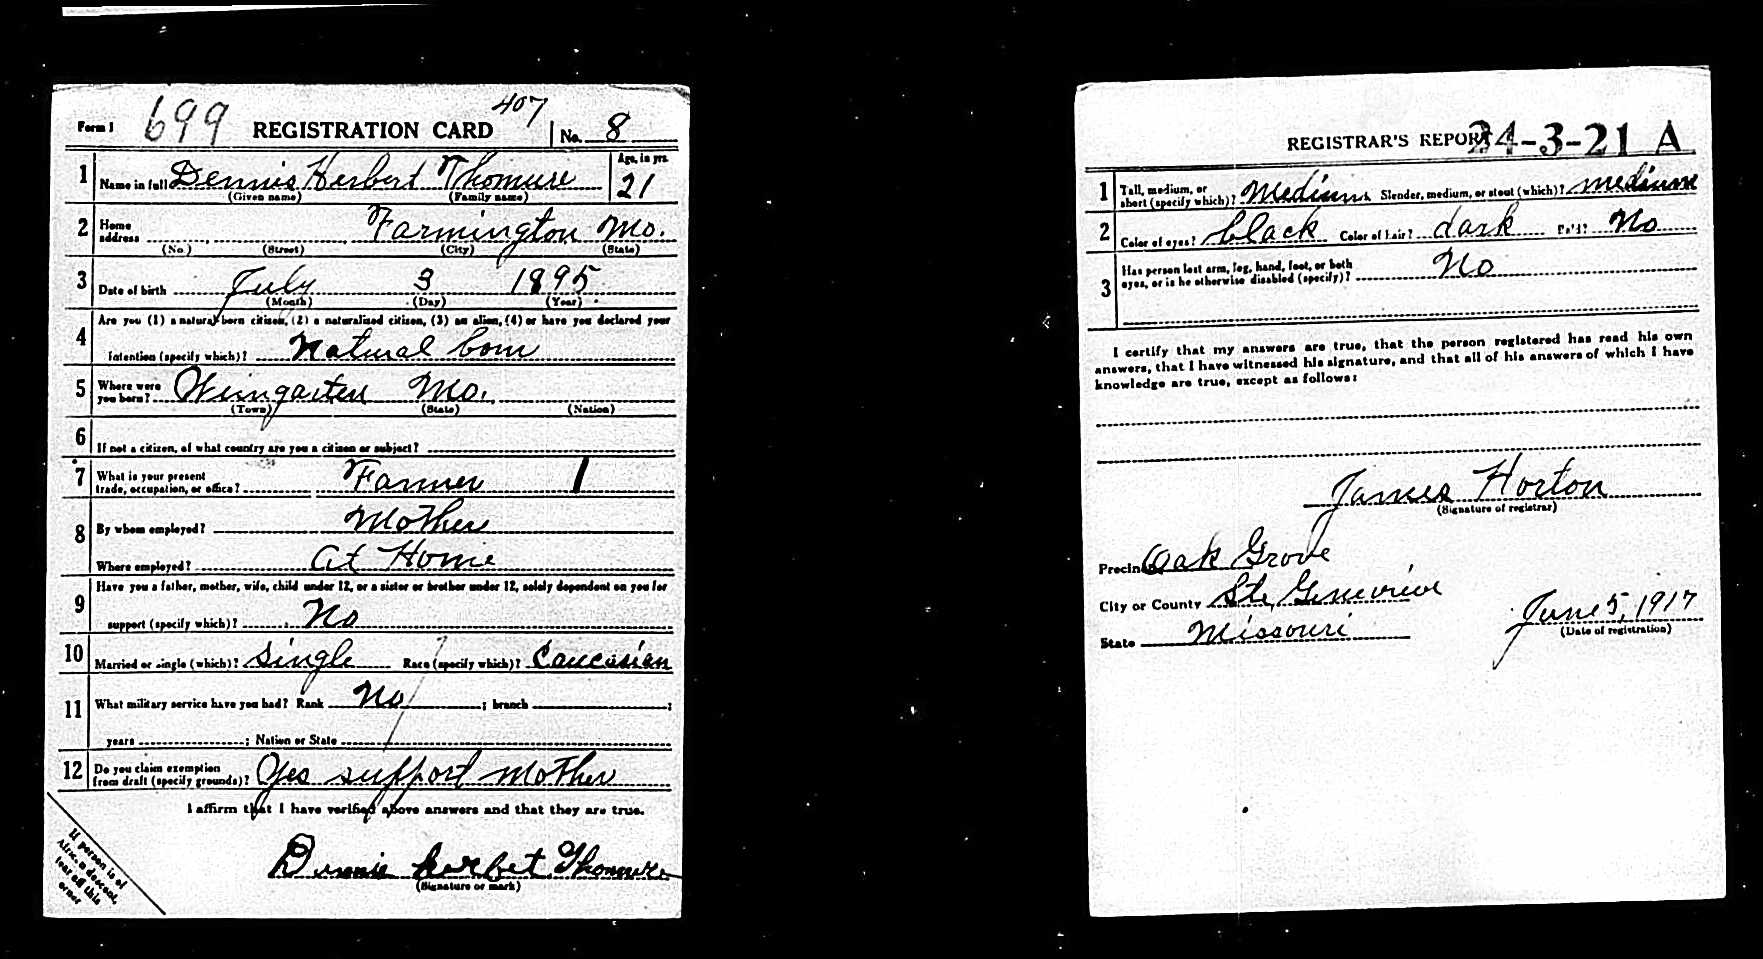 Form 1 699 REGISTRATION CARD 407 No. 8
1 Name in full Dennis Herbert Thomure Age, in yrs. 21
(Given name) (Family name)
2 Home address Farmington Mo.
(No.) (Street) (City) (State)
3 Date of birth July 3 1895
(Month) (Day) (Year)
4 Are you (1) a natural-born citizen, (2) a naturalized citizen, (3) an alien, (4) or have you declared your
intention (specify which)? Natural born
5 Where were you born? Weingarten Mo.
(Town) (State) (Nation)
6 If not a citizen, of what country are you a citizen or subject?
7 What is your present trade, occupation, or office? Farmer 1
8 By whom employed? Mother
Where employed? At Home
9 Have you a father, mother, wife, child under 12, or a sister or brother under 12, solely dependent on you for
support (specify which)? No
10 Married or single (which)? Single Race (specify which)? Caucasian
11 What military service have you had? Rank No ; branch ;
years ; Nation or State
12 Do you claim exemption from draft (specify grounds)? Yes support Mother
I affirm that I have verified above answers and that they are true.
Dennis Herbet Thomure
(Signature or mark)
If person is of
African descent,
tear off this
corner
REGISTRAR'S REPORT 24-3-21 A
1 Tall, medium, or short (specify which)? Medium Slender, medium, or stout (which)? medium
2 Color of eyes? black Color of hair? dark Bald? No
3 Has person lost arm, leg, hand, foot, or both
eyes, or is he otherwise disabled (specify)? No
I certify that my answers are true, that the person registered has read his own
answers, that I have witnessed his signature, and that all of his answers of which I have
knowledge are true, except as follows:
James Horton
(Signature of registrar)
Precinct Oak Grove
City or County Ste, Genevieve
State Missouri
June 5, 1917
(Date of registration)